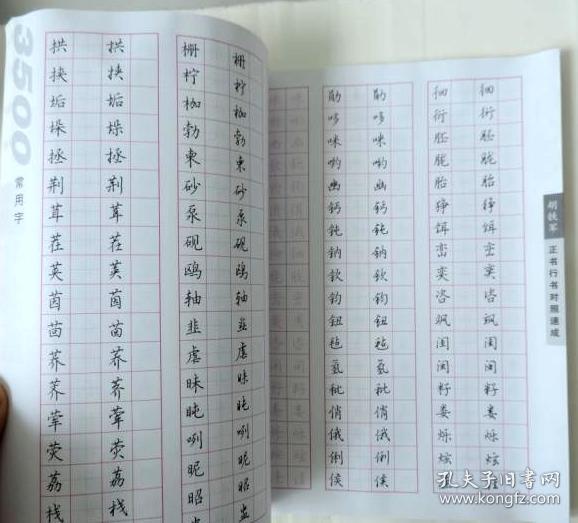 3500
常用字
拱 拱
挟 挟
垢 垢
垛 垛
拯 拯
荆 荆
茸 茸
茬 茬
荚 荚
茵 茵
茴 茴
荞 荞
荠 荠
荤 荤
荧 荧
荔 荔
栈 栈
栅 栅
柠 柠
枷 枷
勃 勃
柬 柬
砂 砂
泵 泵
砚 砚
鸥 鸥
轴 轴
韭 韭
虐 虐
昧 昧
盹 盹
咧 咧
昵 昵
昭 昭
盅 盅
勋 勋
哆 哆
咪 咪
哟 哟
幽 幽
钙 钙
钝 钝
钠 钠
钦 钦
钧 钧
钮 钮
毡 毡
氢 氢
秕 秕
俏 俏
俄 俄
俐 俐
侯 侯
徊 徊
衍 衍
胚 胚
胧 胧
胎 胎
狰 狰
饵 饵
峦 峦
奕 奕
咨 咨
飒 飒
闺 闺
闽 闽
籽 籽
娄 娄
烁 烁
炫 炫
胡铁军
正书行书对照速成
孔夫子旧书网
www.kongfz.com